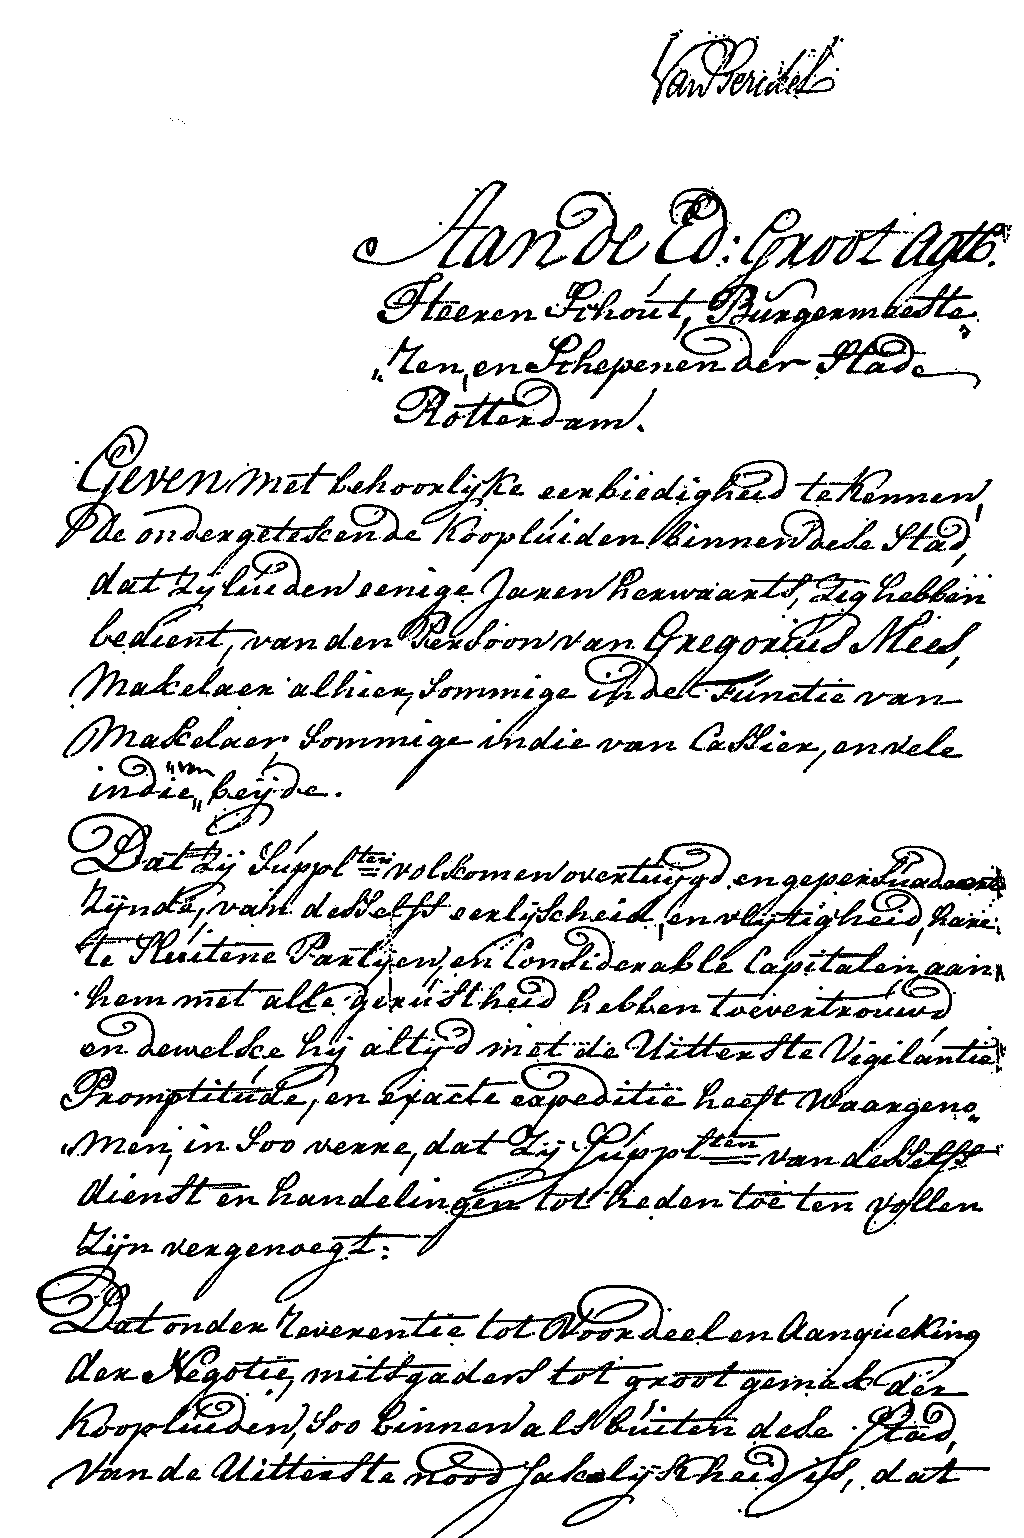 Van Berckel
Aan de Ed: Groot Agtb.
Heeren Schout, Burgermeeste„
„ren, en Schepenen der Stadt
Rotterdam.
Geven met behoorlijke eerbiedigheid te kennen,
De ondergetekende Koopluiden binnen dese Stad,
dat zij luiden eenige Jaren herwaarts, zig hebben
bedient, van den Persoon van Gregorius Mees,
Makelaer alhier, sommige in de Functie van
Makelaer, sommige in die van Cassier, en vele
in die „van„ beijde.
Dat zij Supplten volkomen overtuijgd en gepersuadeert
Zijnde, van desselfs eerlijkheid, en vlijtigheid, hare
te sluitene Partijen, en Considerable Capitalen aan
hem met alle gerustheid hebben toevertrouwd
en dewelke hij altijd met de Uitterste Vigilantie
Promptitude, en exacte expeditie heeft waargeno„
„men, in soo verre, dat Zij Supplten van desselfs
dienst en handelingen tot heden toe ten vollen
Zijn vergenoegt:
Dat onder reverentie tot Voordeel en Aanqueking
der Negotie, mitsgaders tot groot gemak der
Koopluiden, soo binnen als buiten dese Stad,
van de Uitterste noodsakelijkheid is, dat